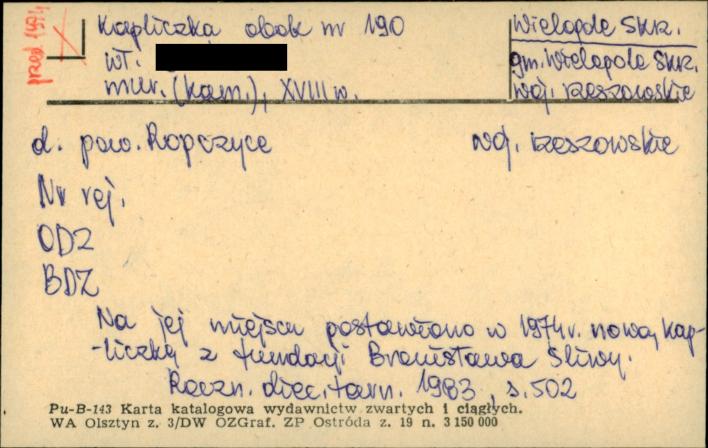 przed 1974
Kapliczka obok nr 190
wł.
mur. (kam.), XVIII w.
Wielopole Skrz.
gm. Wielopole Skrz.
woj. rzeszowskie
d. pow. Ropczyce woj. rzeszowskie
Nr rej.
ODZ
BDZ
Na jej miejscu postawiono w 1974 r. nową kap-
-liczkę z fundacji Bronisława Śliwy.
Roczn. diec. tarn. 1983, s. 502
Pu-B-143 Karta katalogowa wydawnictw zwartych i ciągłych.
WA Olsztyn z. 3/DW OZGraf. ZP Ostróda z. 19 n. 3 150 000